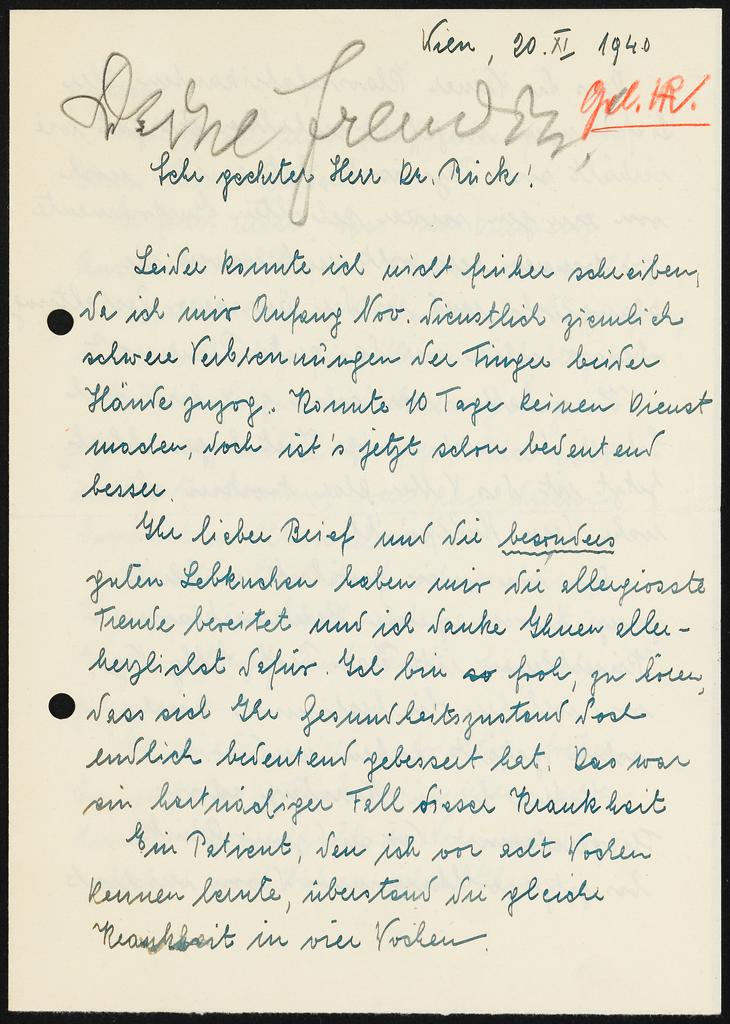 Wien, 20. XI. 1940
Deine Freundin,
Sehr geehrter Herr Dr. Rück!
Leider konnte ich nicht früher schreiben,
da ich mir Anfang Nov. dienstlich ziemlich
schwere Verbrennungen der Finger beider
Hände zuzog. Konnte 10 Tage keinen Dienst
machen, doch ist's jetzt schon bedeutend
besser
Ihr lieber Brief und die besonders
guten Lebkuchen haben mir die allergrösste
Freude bereitet und ich danke Ihnen aller-
herzlichst dafür. Ich bin so froh, zu hören,
dass sich Ihr Gesundheitszustand doch
endlich bedeutend gebessert hat. Das war
ein hartnäckiger Fall dieser Krankheit
Ein Patient, den ich vor acht Wochen
kennen lernte, überstand die gleiche
Krankheit in vier Wochen.